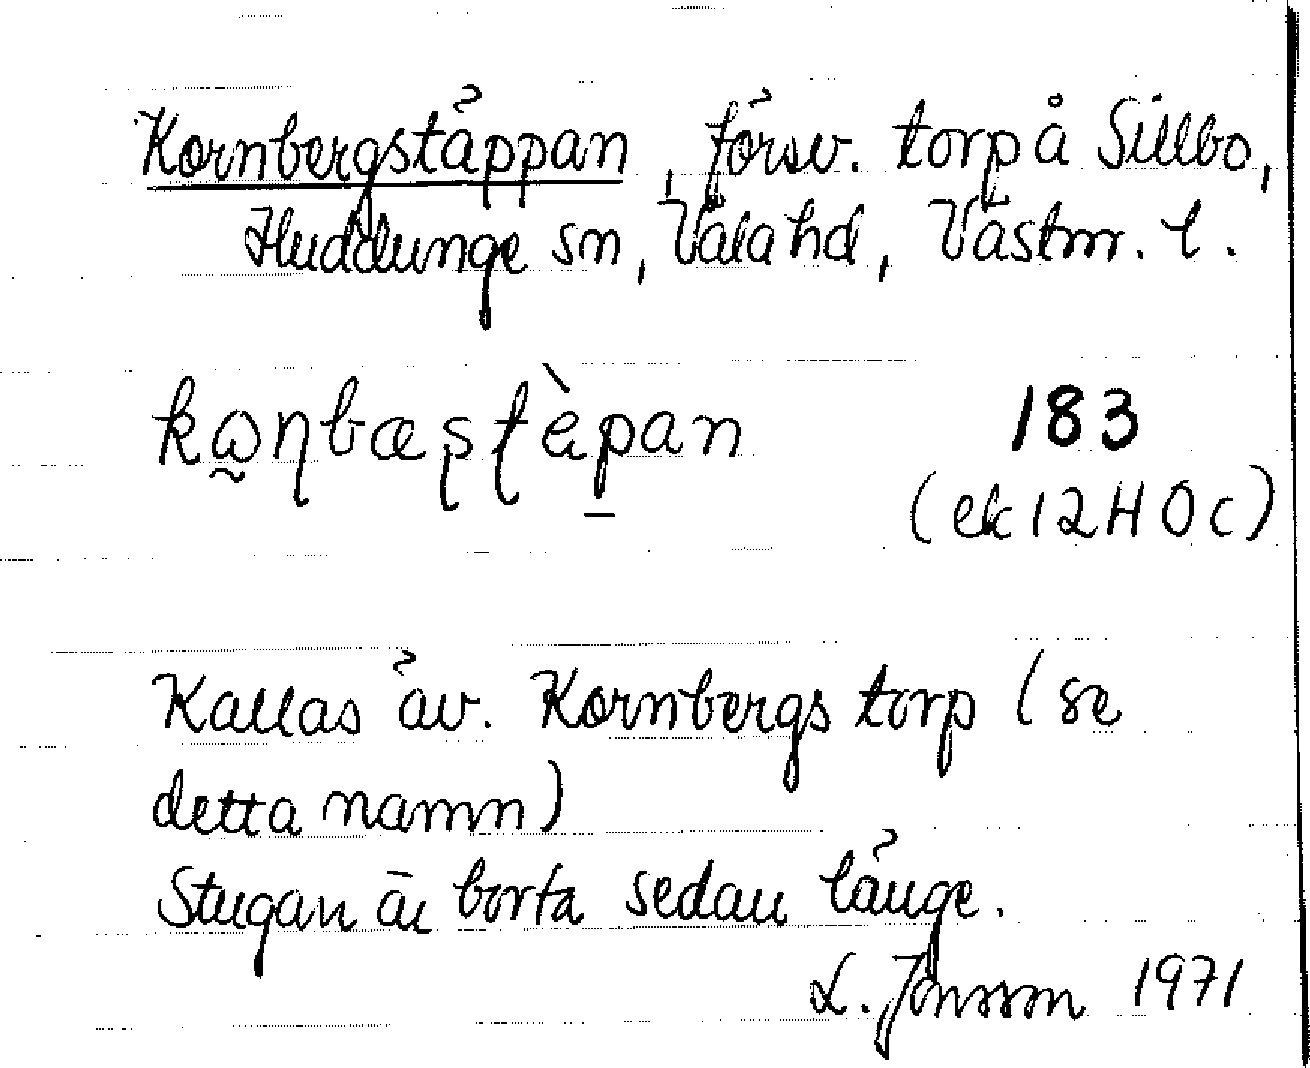 Kornbergstäppan, försv. torp å Sillbo,
Huddunge sn, Våla hd, Västm. l.
kꞷ̰ɳbæʂʈɛ̀p̲an
183
(ek 12H 0c)
Kallas äv. Kornbergs torp (se
detta namn)
Stugan är borta sedan länge.
L. Jonsson 1971